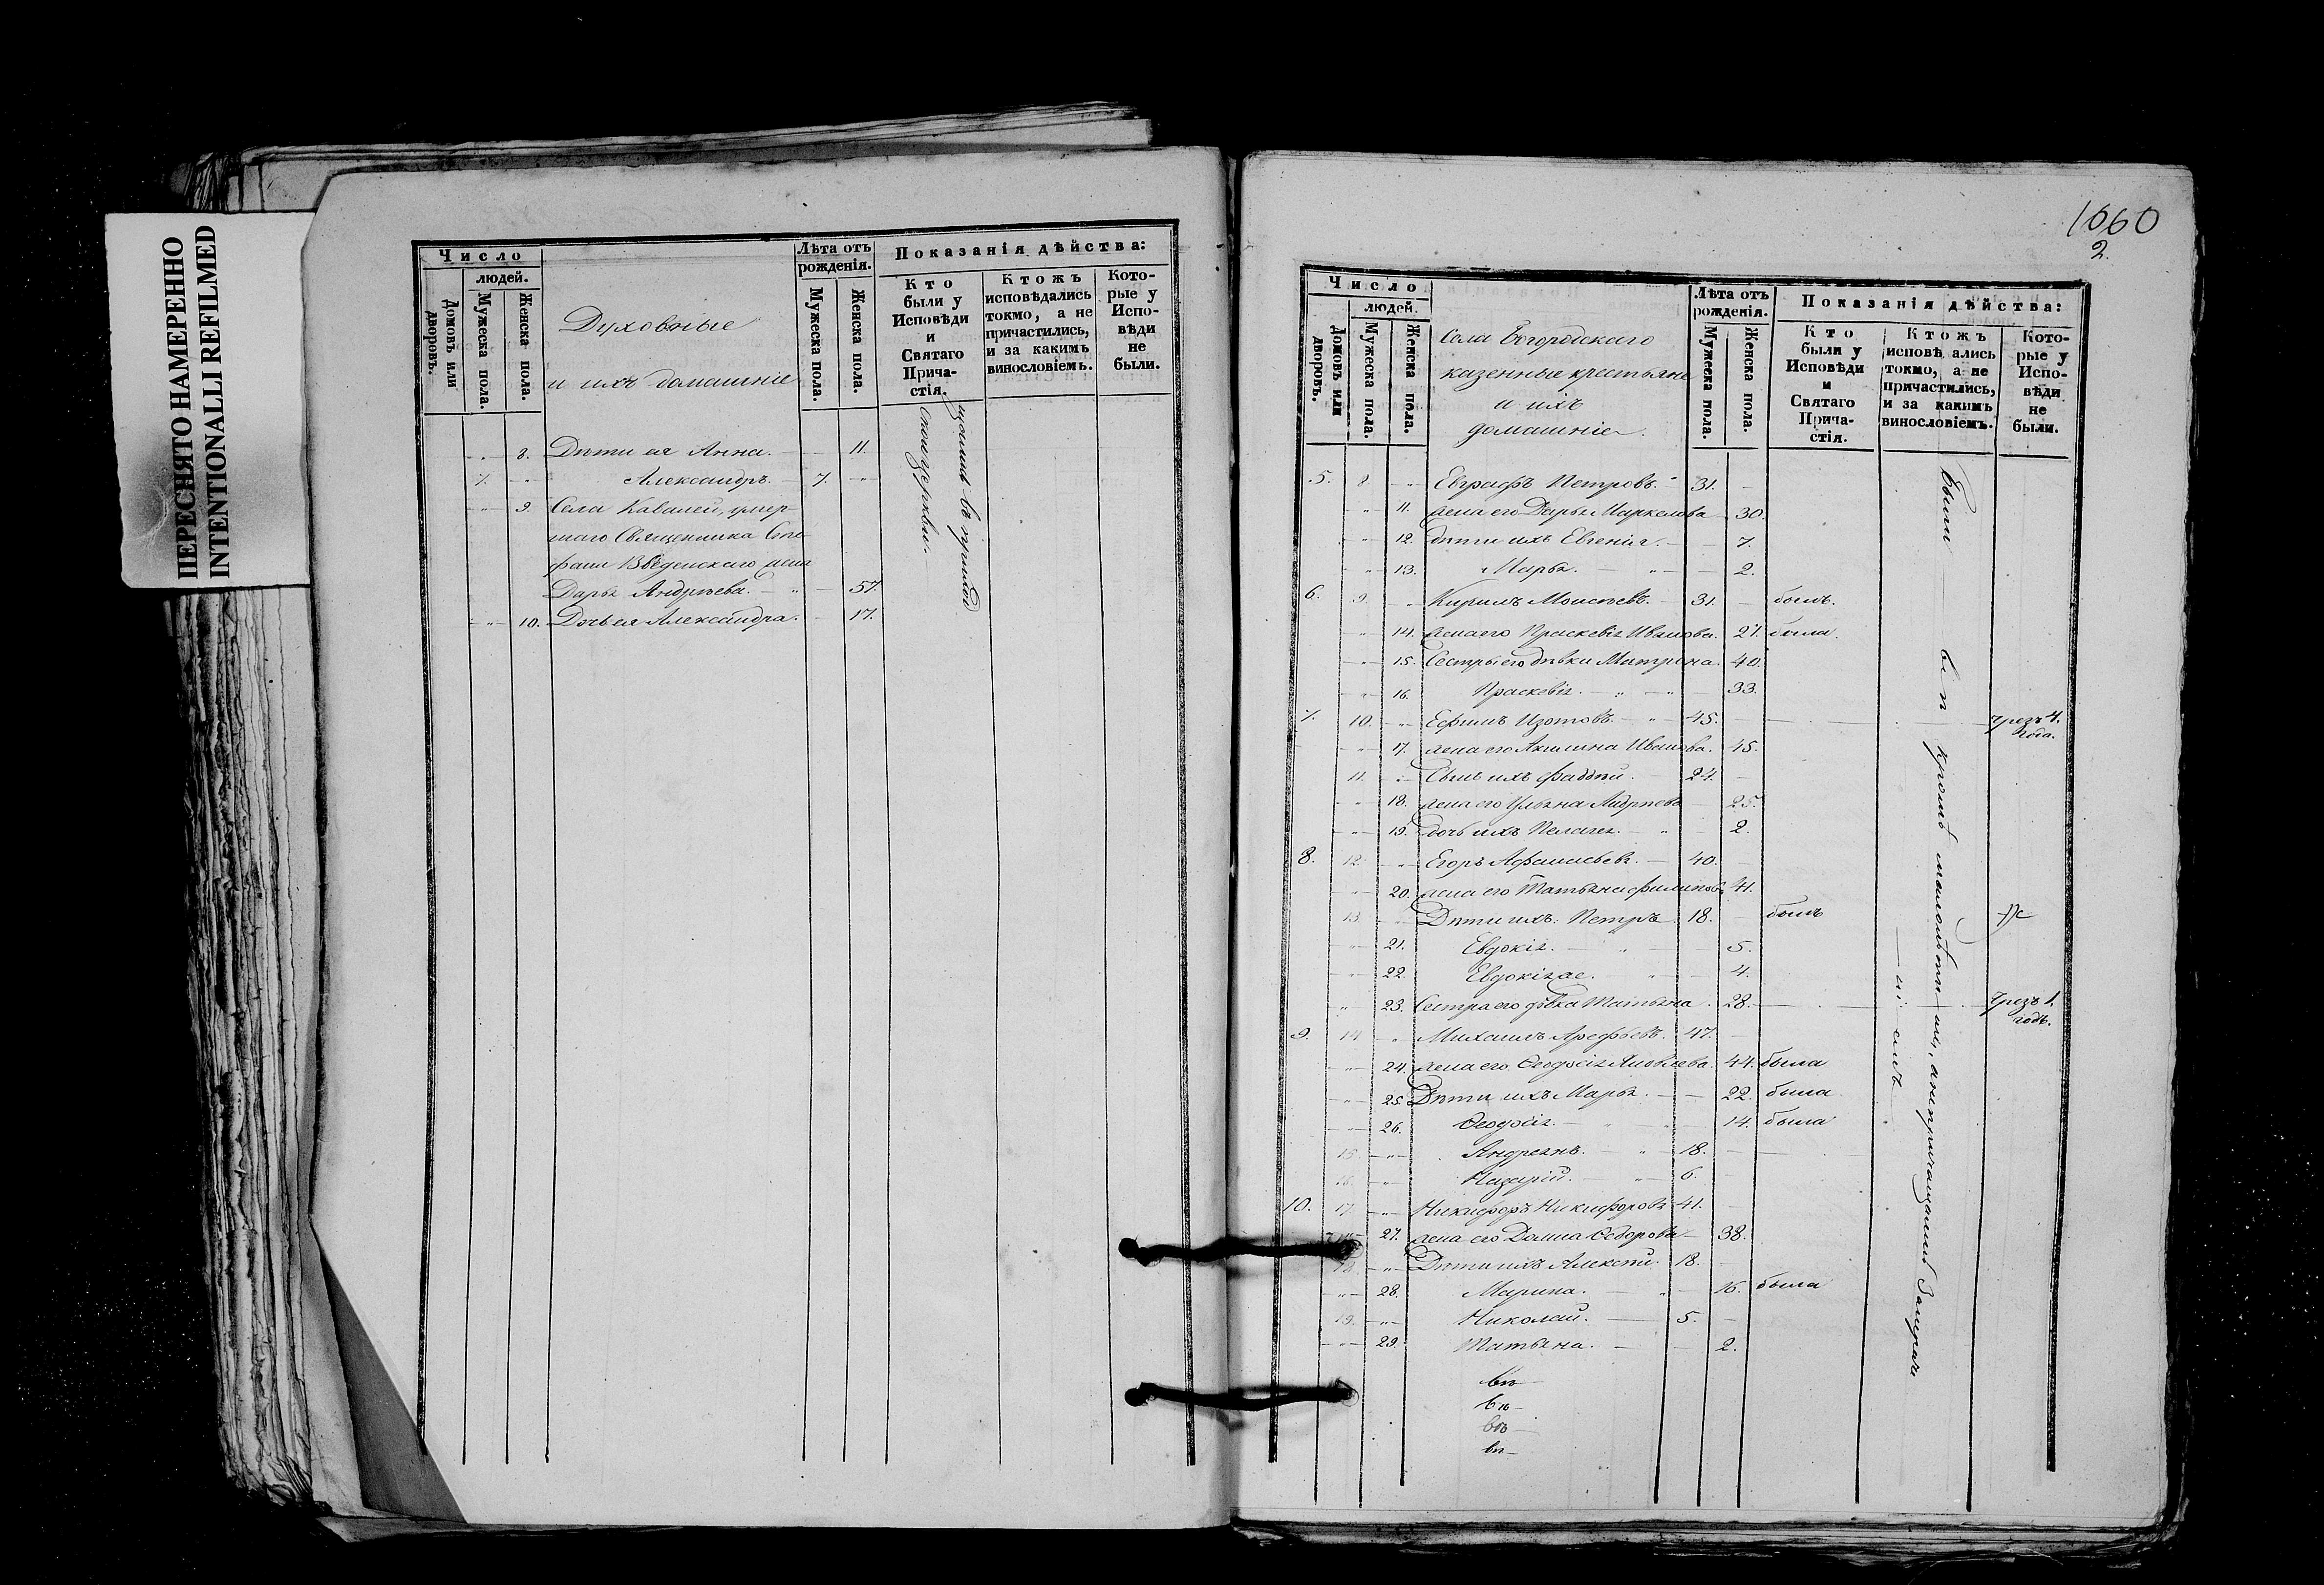 ПЕРЕСНЯТО НАМЕРЕННО
INTENTIONALLI REFILMED
Число
людей.
Домовъ или дворовъ.
Мужеска пола.
Женска пола.
Духовные
и ихъ домашніе
Лѣта отъ рожденія.
Мужеска пола.
Женска пола.
Показанія дѣйства:
Кто были у Исповѣди и Святаго Прича-стія.
Ктожъ исповѣдались токмо, а не причастились, и за какимъ винословіемъ.
Кото-рые у Испо-вѣди не были.
8. Дѣти ея Анна. 11.
7. Александръ. 7.
9. Села Ковалей, умер-
шаго Священника Сте-
фана Введенскаго жена
Дарья Андреева. 57.
10. Дочь ея Александра. 17.
въ
церкви.
1060
2.
Число
людей.
Домовъ или дворовъ.
Мужеска пола.
Женска пола.
Села Богородскаго
казенные крестьяне
и ихъ
домашніе.
Лѣта отъ рожденія.
Мужеска пола.
Женска пола.
Показанія дѣйства:
Кто были у Исповѣди и Святаго Прича-стія.
Ктожъ исповѣ ались токмо, а не причастились, и за какимъ винословіемъ.
Кото-рые у Испо-вѣди не были.
5. 8. Евграфъ Петровъ. 31.
11. жена его Дарья Маркелова 30.
12. дѣти ихъ Евгенія. 7.
13. Марья. 2.
6. 9. Кирилъ Моисеевъ. 31. былъ.
14. жена его Праскевія Иванова. 27. была.
15. Сестры его дѣвки Матрена. 40.
16. Праскевія. 33.
7. 10. Ефимъ Изотовъ. 45. чрезъ 4. года.
17. жена его Акилина Иванова. 45.
11. Сынъ ихъ Фаддей. 24.
18. жена его Ульяна Андреева 25.
19. дочь ихъ Пелагея. 2.
8. 12. Егоръ Афанасьевъ. 40.
20. жена его Татьяна Филипова 41.
13. Дѣти ихъ: Петръ 18. былъ
21. Евдокія. 5.
22. Евдокія же. 4.
23. Сестра его дѣвка Татьяна. 28. чрезъ 1. годъ.
9. 14. Михаилъ Арефьевъ. 47.
24. жена его Ѳеодосія Яковлева. 44. была
25. Дѣти ихъ Марья. 22. была
26. Ѳеодосія. 14. была
15. Андреянъ. 18.
16. Назарій. 6.
10. 17. Никифоръ Никифоровъ 41.
27. жена его Домна Ѳедорова 38.
18. Дѣти ихъ Алексѣй. 18.
28. Марина. 16. была
19. Николай. 5.
29. Татьяна. 2.
Были кромѣ малолѣтн